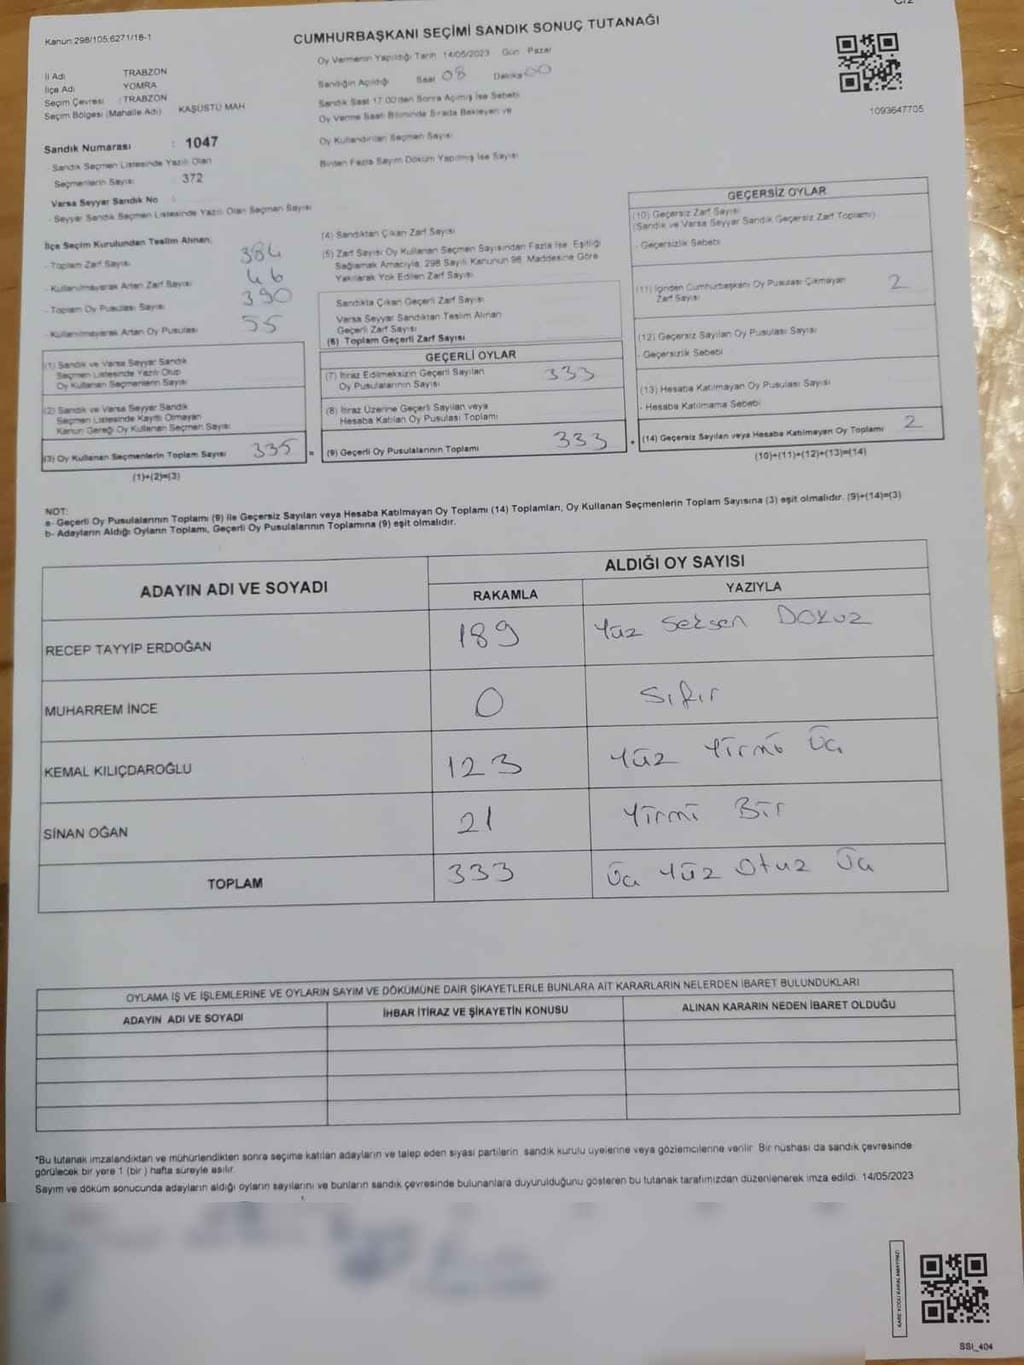 C/2
Kanun:298/105,6271/18-1
CUMHURBAŞKANI SEÇİMİ SANDIK SONUÇ TUTANAĞI
Oy Vermenin Yapıldığı Tarih 14/05/2023 Gün Pazar
Sandığın Açıldığı Saat 08 Dakika 00
Sandık Saat 17:00'den Sonra Açılmış İse Sebebi
Oy Verme Saati Bitiminde Sırada Bekleyen ve
Oy Kullandırılan Seçmen Sayısı
Birden Fazla Sayım Döküm Yapılmış İse Sayısı
1093647705
İl Adı TRABZON
İlçe Adı YOMRA
Seçim Çevresi : TRABZON
Seçim Bölgesi (Mahalle Adı) KAŞÜSTÜ MAH
Sandık Numarası : 1047
- Sandık Seçmen Listesinde Yazılı Olan
Seçmenlerin Sayısı 372
Varsa Seyyar Sandık No
- Seyyar Sandık Seçmen Listesinde Yazılı Olan Seçmen Sayısı
İlçe Seçim Kurulundan Teslim Alınan;
- Toplam Zarf Sayısı 384
- Kullanılmayarak Artan Zarf Sayısı 46
- Toplam Oy Pusulası Sayısı 390
- Kullanılmayarak Artan Oy Pusulası 55
(1) Sandık ve Varsa Seyyar Sandık
Seçmen Listesinde Yazılı Olup
Oy Kullanan Seçmenlerin Sayısı
(2) Sandık ve Varsa Seyyar Sandık
Seçmen Listesinde Kayıtlı Olmayan
Kanun Gereği Oy Kullanan Seçmen Sayısı
(3) Oy Kullanan Seçmenlerin Toplam Sayısı 335 =
(1)+(2)=(3)
(4) Sandıktan Çıkan Zarf Sayısı
(5) Zarf Sayısı Oy Kullanan Seçmen Sayısından Fazla İse, Eşitliği
Sağlamak Amacıyla, 298 Sayılı Kanunun 98. Maddesine Göre
Yakılarak Yok Edilen Zarf Sayısı
Sandıkta Çıkan Geçerli Zarf Sayısı
Varsa Seyyar Sandıktan Teslim Alınan
Geçerli Zarf Sayısı
(6) Toplam Geçerli Zarf Sayısı
GEÇERLİ OYLAR
(7) İtiraz Edilmeksizin Geçerli Sayılan
Oy Pusulalarının Sayısı 333
(8) İtiraz Üzerine Geçerli Sayılan veya
Hesaba Katılan Oy Pusulası Toplamı
(9) Geçerli Oy Pusulalarının Toplamı 333 +
GEÇERSİZ OYLAR
(10) Geçersiz Zarf Sayısı
(Sandık ve Varsa Seyyar Sandık Geçersiz Zarf Toplamı)
- Geçersizlik Sebebi
(11) İçinden Cumhurbaşkanı Oy Pusulası Çıkmayan
Zarf Sayısı 2
(12) Geçersiz Sayılan Oy Pusulası Sayısı
- Geçersizlik Sebebi
(13) Hesaba Katılmayan Oy Pusulası Sayısı
- Hesaba Katılmama Sebebi
(14) Geçersiz Sayılan veya Hesaba Katılmayan Oy Toplamı 2
(10)+(11)+(12)+(13)=(14)
NOT:
a- Geçerli Oy Pusulalarının Toplamı (9) ile Geçersiz Sayılan veya Hesaba Katılmayan Oy Toplamı (14) Toplamları, Oy Kullanan Seçmenlerin Toplam Sayısına (3) eşit olmalıdır. (9)+(14)=(3)
b- Adayların Aldığı Oyların Toplamı, Geçerli Oy Pusulalarının Toplamına (9) eşit olmalıdır.
ADAYIN ADI VE SOYADI ALDIĞI OY SAYISI
RAKAMLA YAZIYLA
RECEP TAYYİP ERDOĞAN 189 Yüz Seksen Dokuz
MUHARREM İNCE 0 Sıfır
KEMAL KILIÇDAROĞLU 123 Yüz Yirmi Üç
SİNAN OĞAN 21 Yirmi Bir
TOPLAM 333 Üç Yüz Otuz Üç
OYLAMA İŞ VE İŞLEMLERİNE VE OYLARIN SAYIM VE DÖKÜMÜNE DAİR ŞİKAYETLERLE BUNLARA AİT KARARLARIN NELERDEN İBARET BULUNDUKLARI
ADAYIN ADI VE SOYADI İHBAR İTİRAZ VE ŞİKAYETİN KONUSU ALINAN KARARIN NEDEN İBARET OLDUĞU
*Bu tutanak imzalandıktan ve mühürlendikten sonra seçime katılan adayların ve talep eden siyasi partilerin sandık kurulu üyelerine veya gözlemcilerine verilir. Bir nüshası da sandık çevresinde
görülecek bir yere 1 (bir ) hafta süreyle asılır.
Sayım ve döküm sonucunda adayların aldığı oyların sayılarını ve bunların sandık çevresinde bulunanlara duyurulduğunu gösteren bu tutanak tarafımızdan düzenlenerek imza edildi. 14/05/2023
KARE KODU KARALAMAYINIZ!
SSI_404